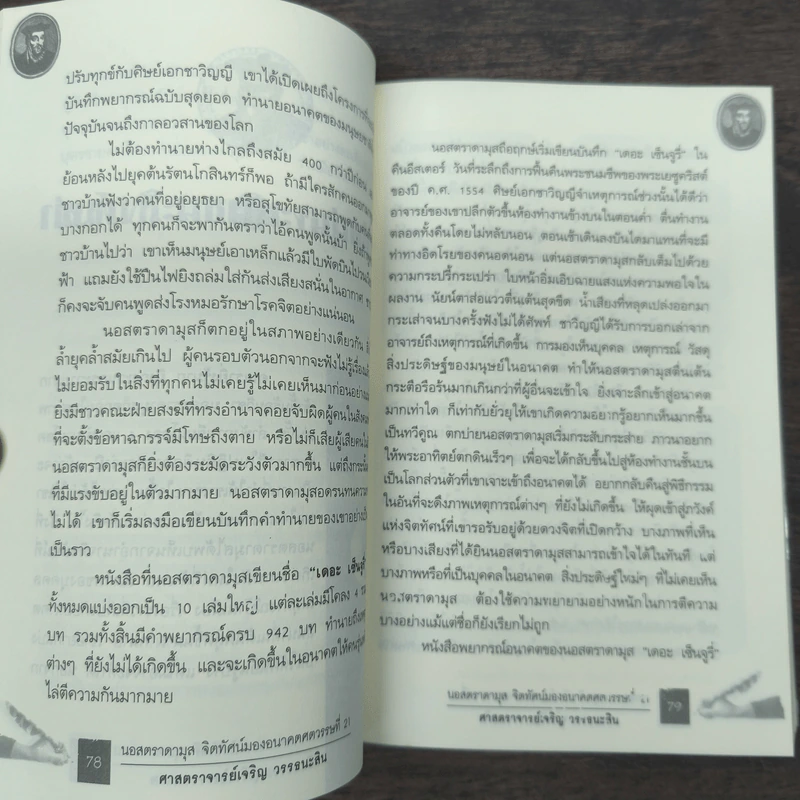 ปรับทุกข์กับศิษย์เอกชาวิญญี เขาได้เปิดเผยถึงโครงการ
บันทึกพยากรณ์ฉบับสุดยอด ทำนายอนาคตของมนุษย
ปัจจุบันจนถึงกาลอวสานของโลก
ไม่ต้องทำนายห่างไกลถึงสมัย 400 กว่าปีก่อน
ย้อนหลังไปยุคต้นรัตนโกสินทร์ก็พอ ถ้ามีใครสักคนออก
ชาวบ้านฟังว่าคนที่อยู่อยุธยา หรือสุโขทัยสามารถพูดกับคน
บางกอกได้ ทุกคนก็จะพากันตราว่าไอ้คนพูดนั้นบ้า ยิ่งถ้า
ชาวบ้านไปว่า เขาเห็นมนุษย์เอาเหล็กแล้วมีใบพัดบินไปวน
ฟ้า แถมยังใช้ปืนไฟยิงถล่มใส่กันส่งเสียงสนั่นในอากาศ
ก็คงจะจับคนพูดส่งโรงหมอรักษาโรคจิตอย่างแน่นอน
นอสตราดามุสก็ตกอยู่ในสภาพอย่างเดียวกัน
ล้ำยุคล้ำสมัยเกินไป ผู้คนรอบตัวนอกจากจะฟังไม่รู้เรื่อง
ไม่ยอมรับในสิ่งที่ทุกคนไม่เคยรู้ไม่เคยเห็นมาก่อนอย่าง
ยิ่งมีชาวคณะฝ่ายสงฆ์ที่ทรงอำนาจคอยจับผิดผู้คนในสังคม
ที่จะตั้งข้อหาฉกรรจ์มีโทษถึงตาย หรือไม่ก็เสียผู้เสียคน
นอสตราดามุสก็ยิ่งต้องระมัดระวังตัวมากขึ้น แต่ถึงกระนั้น
ที่มีแรงขับอยู่ในตัวมากมาย นอสตราดามุสอดรนทน
ไม่ได้ เขาก็เริ่มลงมือเขียนบันทึกคำทำนายของเขาอย่าง
เป็นราว
หนังสือที่นอสตราดามุสเขียนชื่อ "เดอะ เซ็นจูรี่"
ทั้งหมดแบ่งออกเป็น 10 เล่มใหญ่ แต่ละเล่มมีโคลง 4
บท รวมทั้งสิ้นมีคำพยากรณ์ครบ 942 บท ทำนายถึง
ต่างๆ ที่ยังไม่ได้เกิดขึ้น และจะเกิดขึ้นในอนาคตให้คน
ไล่ตีความกันมากมาย
78
นอสตราดามุส จิตทัศน์มองอนาคตศตวรรษที่ 21
ศาสตราจารย์เจริญ วรรธนะสิน
นอสตราดามุสถือฤกษ์เริ่มเขียนบันทึก "เดอะ เซ็นจูรี่" ใน
คืนอีสเตอร์ วันที่ระลึกถึงการฟื้นคืนพระชนมชีพของพระเยซูคริสต์
ของปี ค.ศ. 1554 ศิษย์เอกชาวิญญีจำเหตุการณ์ช่วงนั้นได้ดีว่า
อาจารย์ของเขาปลีกตัวขึ้นห้องทำงานข้างบนในตอนค่ำ ตื่นทำงาน
ตลอดทั้งคืนโดยไม่หลับนอน ตอนเช้าเดินลงบันไดมาแทนที่จะมี
ท่าทางอิดโรยของคนอดนอน แต่นอสตราดามุสกลับเต็มไปด้วย
ความกระปรี้กระเปร่า ใบหน้าอิ่มเอิบฉายแสงแห่งความพอใจใน
ผลงาน นัยน์ตาส่อแววตื่นเต้นสุดขีด น้ำเสียงที่หลุดเปล่งออกมา
กระเส่าจนบางครั้งฟังไม่ได้ศัพท์ ชาวิญญีได้รับการบอกเล่าจาก
อาจารย์ถึงเหตุการณ์ที่เกิดขึ้น การมองเห็นบุคคล เหตุการณ์ วัสดุ
สิ่งประดิษฐ์ของมนุษย์ในอนาคต ทำให้นอสตราดามุสตื่นเต้น
กระตือรือร้นมากเกินกว่าที่ผู้อื่นจะเข้าใจ ยิ่งเจาะลึกเข้าสู่อนาคต
มากเท่าใด ก็เท่ากับยั่วยุให้เขาเกิดความอยากรู้อยากเห็นมากขึ้น
เป็นทวีคูณ ตกบ่ายนอสตราดามุสเริ่มกระสับกระส่าย ภาวนาอยาก
ให้พระอาทิตย์ตกดินเร็วๆ เพื่อจะได้กลับขึ้นไปสู่ห้องทำงานชั้นบน
เป็นโลกส่วนตัวที่เขาเจาะเข้าถึงอนาคตได้ อยากกลับคืนสู่พิธีกรรม
ในอันที่จะดึงภาพเหตุการณ์ต่างๆ ที่ยังไม่เกิดขึ้น ให้ผุดเข้าสู่ภวังค์
แห่งจิตทัศน์ที่เขารอรับอยู่ด้วยดวงจิตที่เปิดกว้าง บางภาพที่เห็น
หรือบางเสียงที่ได้ยินนอสตราดามุสสามารถเข้าใจได้ในทันที แต่
บางภาพหรือที่เป็นบุคคลในอนาคต สิ่งประดิษฐ์ใหม่ๆ ที่ไม่เคยเห็น
นอสตราดามุส ต้องใช้ความพยายามอย่างหนักในการตีความ
บางอย่างแม้แต่ชื่อก็ยังเรียกไม่ถูก
หนังสือพยากรณ์อนาคตของนอสตราดามุส "เดอะ เซ็นจูรี่"
นอสตราดามุส จิตทัศน์มองอนาคตศตวรรษที่ 21
ศาสตราจารย์เจริญ วรรธนะสิน
79